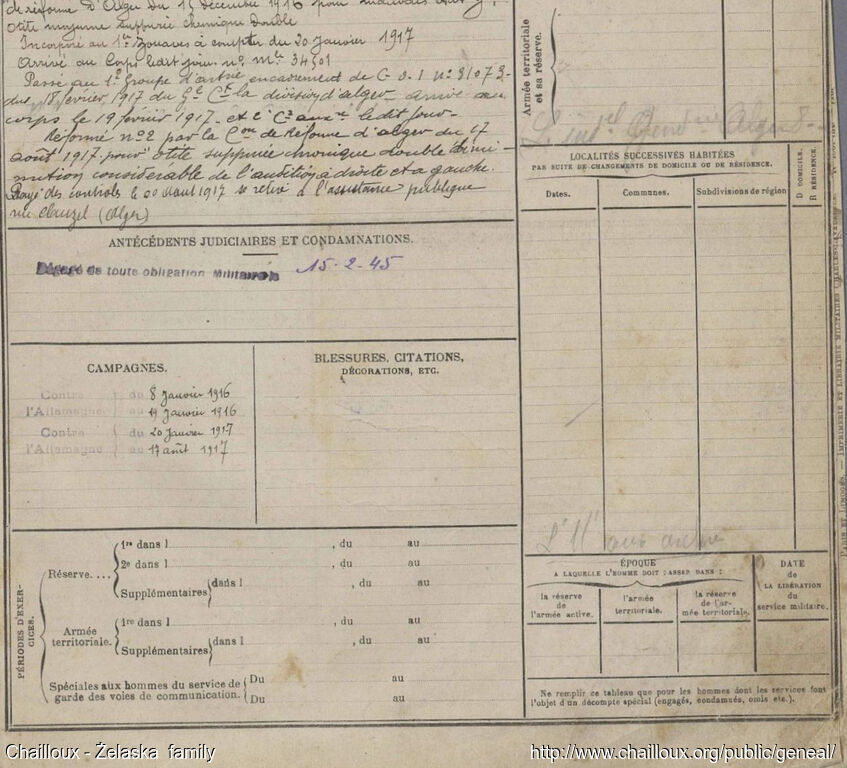 de réforme d'Alger du 15 décembre 1916 pour
otite moyenne suppurée chronique double
Incorporé au 1er Zouaves à compter du 20 Janvier 1917
Arrivé au Corps ledit jour n° Mle 34501
Passé au 1er Groupe d'artrie
du 18 février 1917 du Gal Ct la division d'alger arrivé au
corps le 19 février 1917 et
Réformé n°2 par la Con de Réforme d'alger du 17
août 1917 pour otite suppurée chronique double dimi-
nution considérable de l'audition à droite et à gauche.
Rayé des controls le 20 Aout 1917 se retire à l'assistance publique
rue Clauzel (Alger)
ANTÉCÉDENTS JUDICIAIRES ET CONDAMNATIONS.
Dégagé de toute obligation Militaire le 15-2-45
CAMPAGNES.
Contre l'Allemagne du 8 Janvier 1916
au 19 Janvier 1916
Contre l'Allemagne du 20 Janvier 1917
au 17 août 1917
BLESSURES, CITATIONS,
DÉCORATIONS, ETC.
PÉRIODES D'EXER-
CICES.
Réserve....
1re dans l , du au
2e dans l , du au
Supplémentaires dans l , du au
Armée
territoriale.
1re dans l , du au
Supplémentaires dans l , du au
Spéciales aux hommes du service de
garde des voies de communication.
Du au
Du au
Armée territoriale
et sa réserve.
LOCALITÉS SUCCESSIVES HABITÉES
PAR SUITE DE CHANGEMENTS DE DOMICILE OU DE RÉSIDENCE.
Dates.
Communes.
Subdivisions de région
D DOMICILE.
R RÉSIDENCE.
ÉPOQUE
A LAQUELLE L'HOMME DOIT PASSER DANS :
la réserve
de
l'armée active.
l'armée
territoriale.
la réserve
de l'ar-
mée territoriale.
DATE
de
LA LIBÉRATION
du
service militaire.
Ne remplir ce tableau que pour les hommes dont les services font
l'objet d'un décompte spécial (engagés, condamnés, omis etc.).
PARIS ET LIMOGES. — IMPRIMERIE ET LIBRAIRIE MILITAIRES CHARLES-LAVAUZELLE
Chailloux - Żelaska family
http://www.chailloux.org/public/geneal/